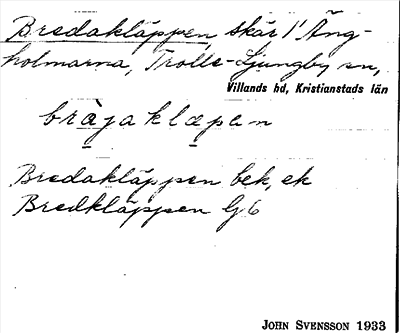 Bredakläppen, skär i Äng-
holmarna, Trolle-Ljungby sn,
Villands hd, Kristianstads län
bràjaklæpen
Bredakläppen bek, ek
Bredkläppen G6
JOHN SVENSSON 1933